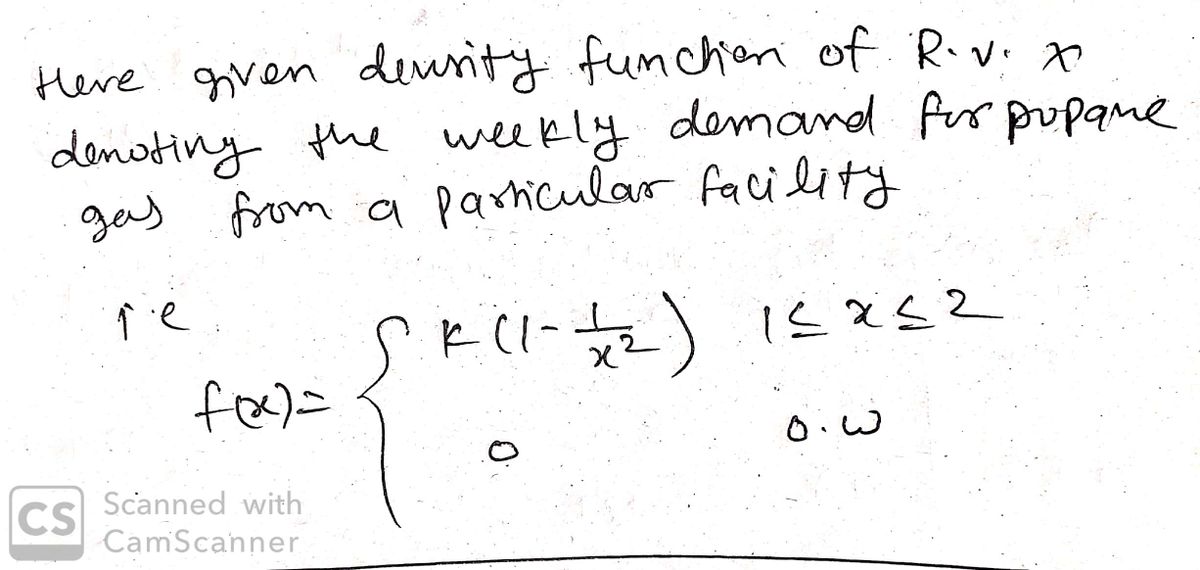 Here given density function of R.v. x
denoting the weekly demand for propane
gas from a particular facility
i.e
f(x) = { k(1 - 1/x²) 1 ≤ x ≤ 2
0 o.w
CS Scanned with
CamScanner